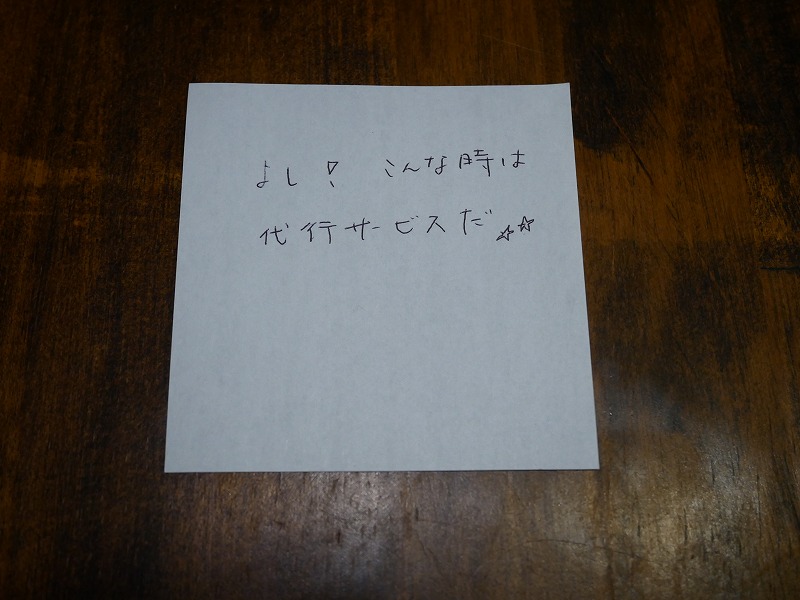 よし! こんな時は
代行サービスだ☆☆